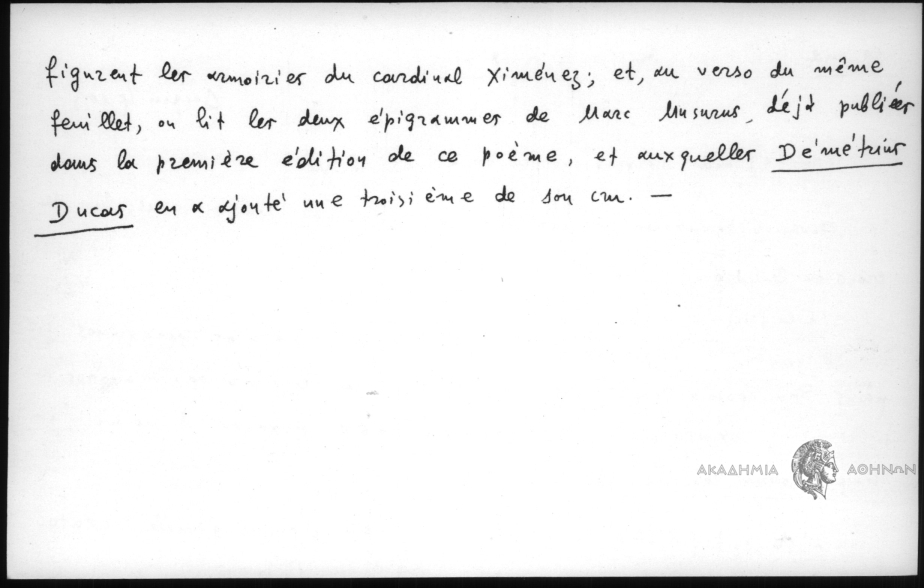 figurent les armoiries du cardinal Ximénez; et, au verso du même
feuillet, on lit les deux épigrammes de Marc Musurus, déjà publiées
dans la première édition de ce poème, et auxquelles Démétrius
Ducas en a ajouté une troisième de son cru. —
ΑΚΑΔΗΜΙΑ ΑΘΗΝΩΝ